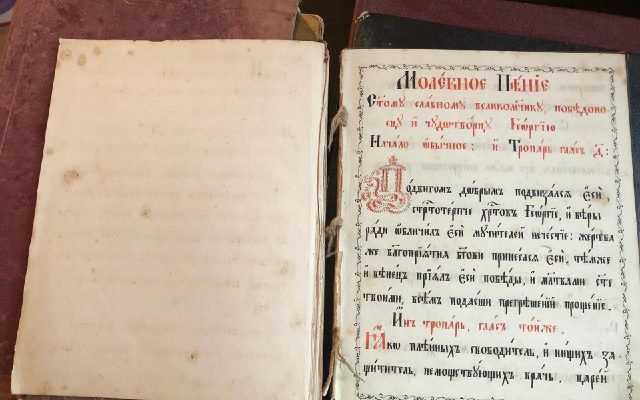 Моле́бное Пѣ́нїе
Ст҃о́му сла́вному великомч҃нику, побѣдоно
сцу и҆ чꙋдотво́рцу Гео́ргїю
Нача́ло ѻ҆бы́чное: и҆ Тропа́рь гла́съ д҃:
По́двигомъ до́брымъ подвиза́лсѧ є҆сѝ
стрⷭ҇тоте́рпче хрⷭ҇то́въ Гео́ргїе, и҆ вѣ́ры
ра́ди ѡ҆бличи́лъ є҆сѝ мꙋчи́телей нече́стїе: же́ртва
же благопрїѧ́тна бг҃ови принесе́сѧ є҆сѝ, тѣ́мже
и҆ вѣне́цъ прїѧ́лъ є҆сѝ побѣ́ды, и҆ мл҃твами ст҃е
твои́ми, всѣ́мъ подае́ши прегрѣше́нїй проще́нїе.
И҆́нъ тропа́рь, гла́съ то́йже.
Ꙗ҆́кѡ плѣ́нныхъ свободи́тель, и҆ ни́щихъ за
щи́титель, немощствꙋ́ющихъ вра́чь царе́й